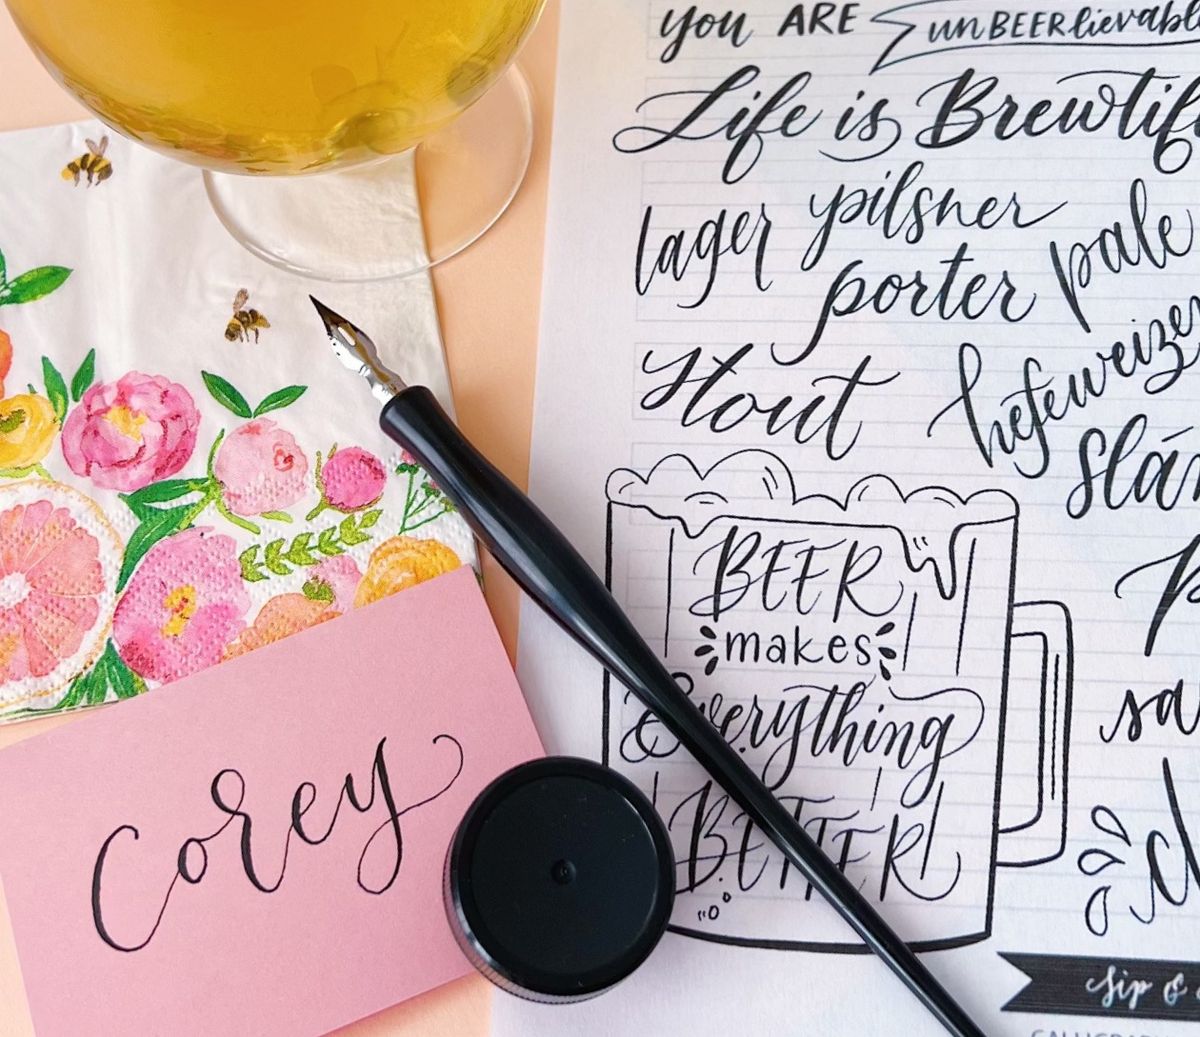 you ARE unBEERlievabl
Life is Brewtif
lager pilsner
porter pale
stout hefeweize
Slá
BEER
makes
Everything
BETTER
sa
Sip &
corey